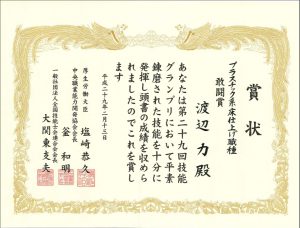 賞状
プラスチック系床仕上げ職種
敢闘賞
渡辺 力 殿
あなたは第二十九回技能
グランプリにおいて平素
錬磨された技能を十分に
発揮し頭書の成績を収めら
れましたのでこれを賞し
ます
平成二十九年二月十三日
厚生労働大臣 塩崎恭久
中央職業能力開発協会会長 釜 和明
一般社団法人全国技能士会連合会会長
大関東支夫